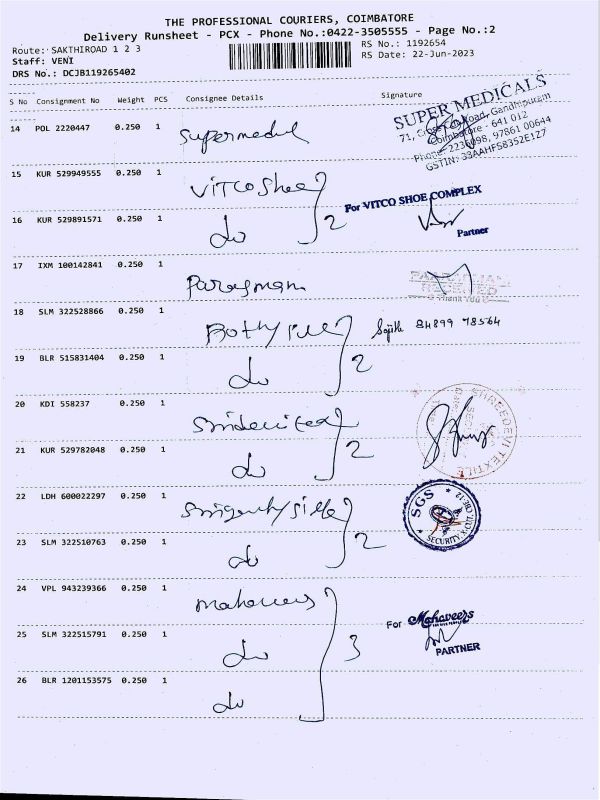 THE PROFESSIONAL COURIERS, COIMBATORE
Delivery Runsheet - PCX - Phone No.:0422-3505555 - Page No.:2
Route: SAKTHIROAD 1 2 3
RS No.: 1192654
Staff: VENI
RS Date: 22-Jun-2023
DRS No.: DCJB119265402
S No Consignment No Weight PCS Consignee Details Signature
SUPER MEDICALS
71, Cross Cut Road, Gandhipuram
Coimbatore - 641 012
97861 00644
GSTIN: 33AAHFS8352E1Z7
14 POL 2220447 0.250 1 Supermedul
15 KUR 529949555 0.250 1 VITCO Shoe
For VITCO SHOE COMPLEX
16 KUR 529891571 0.250 1 do 2
Partner
17 IXM 100142841 0.250 1 Parasmam
Thank You
18 SLM 322528866 0.250 1 84899 78564
19 BLR 515831404 0.250 1 do 2
20 KDI 558237 0.250 1
SHREEDEVI TEXTILE
21 KUR 529782048 0.250 1 do 2
22 LDH 600022297 0.250 1
SGS
SECURITY
23 SLM 322510763 0.250 1 do 2
24 VPL 943239366 0.250 1 mahaveers
For Mahaveers
25 SLM 322515791 0.250 1 do 3
PARTNER
26 BLR 1201153575 0.250 1 do